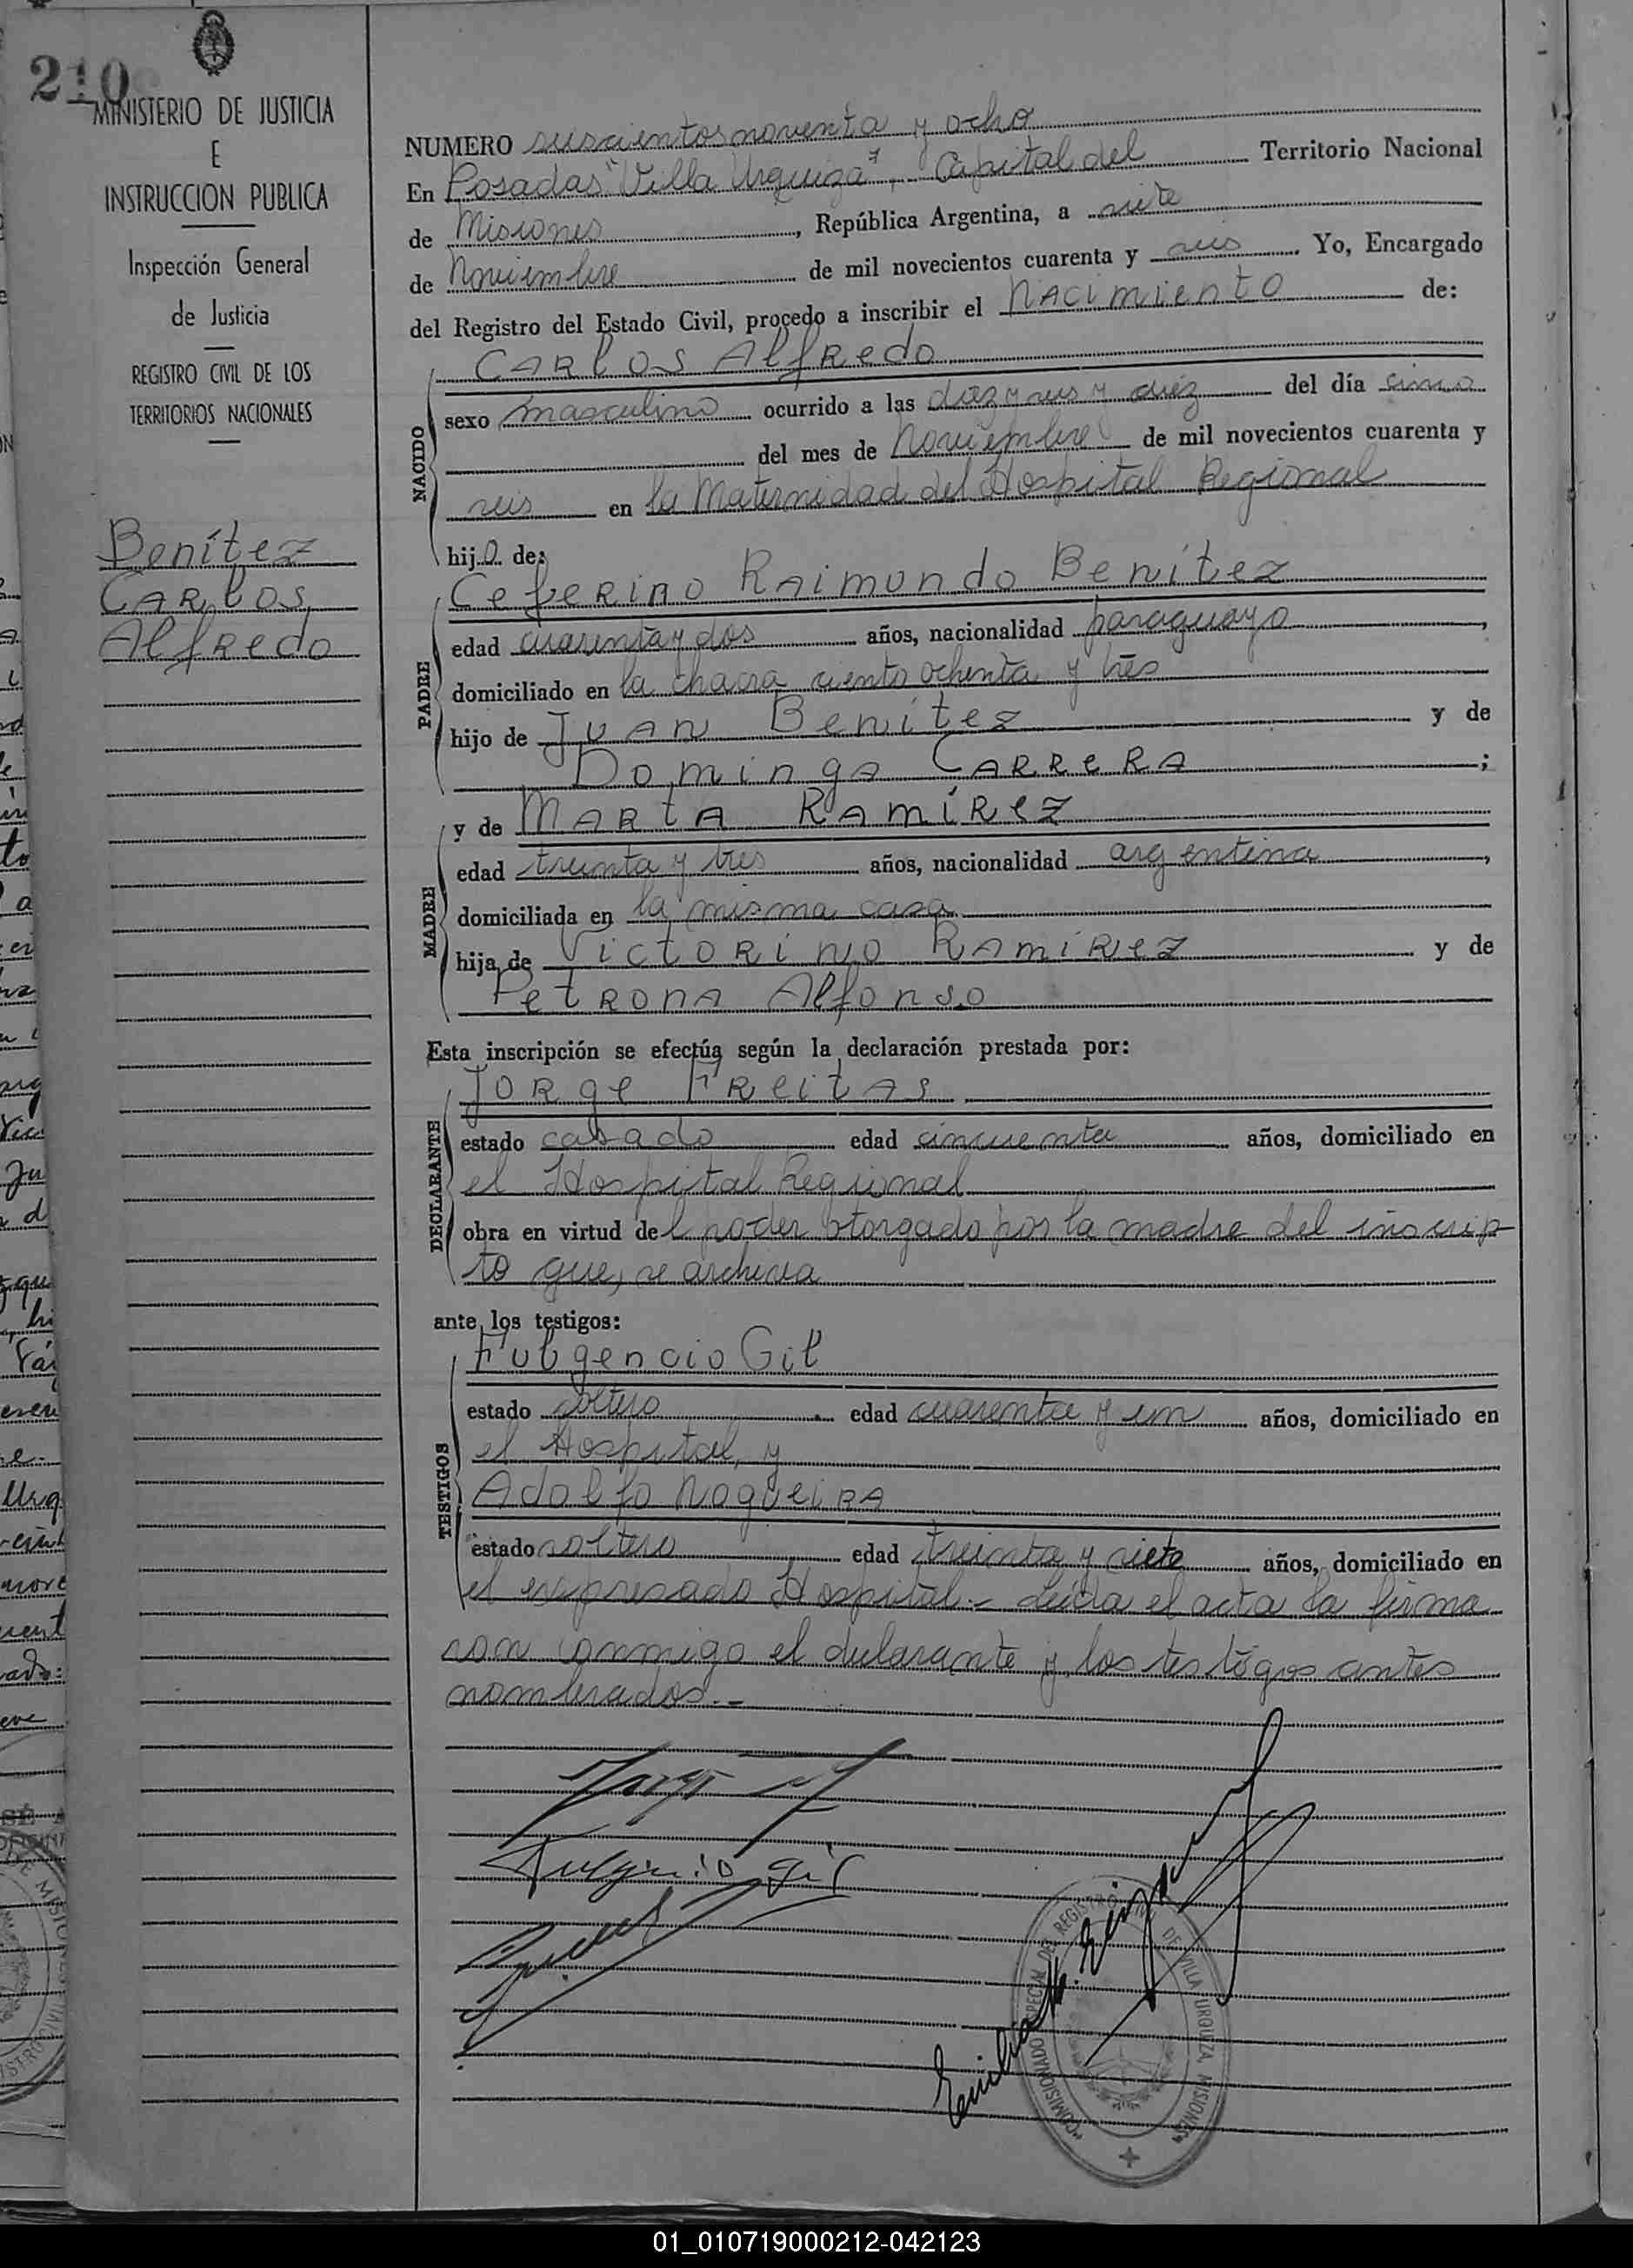 210
MINISTERIO DE JUSTICIA
E
INSTRUCCION PUBLICA
Inspección General
de Justicia
REGISTRO CIVIL DE LOS
TERRITORIOS NACIONALES
Benítez
Carlos
Alfredo
NUMERO seiscientos noventa y ocho
En Posadas "Villa Urquiza", Capital del Territorio Nacional
de Misiones, República Argentina, a siete
de Noviembre de mil novecientos cuarenta y seis. Yo, Encargado
del Registro del Estado Civil, procedo a inscribir el Nacimiento de:
NACIDO
Carlos Alfredo
sexo masculino ocurrido a las diez y seis y diez del día cinco
del mes de Noviembre de mil novecientos cuarenta y
seis en la Maternidad del Hospital Regional
hijo de:
PADRE
Ceferino Raimundo Benítez
edad cuarenta y dos años, nacionalidad paraguayo,
domiciliado en la chacra ciento ochenta y tres
hijo de Juan Benítez y de
Dominga Carrera;
MADRE
y de Marta Ramírez
edad treinta y tres años, nacionalidad argentina,
domiciliada en la misma casa
hija de Victorino Ramírez y de
Petrona Alfonso
Esta inscripción se efectúa según la declaración prestada por:
DECLARANTE
Jorge Freitas
estado casado edad cincuenta años, domiciliado en
el Hospital Regional
obra en virtud del poder otorgado por la madre del inscrip
to que, se archiva
ante los testigos:
TESTIGOS
Fulgencio Gil
estado soltero edad cuarenta y un años, domiciliado en
el Hospital, y
Adolfo Nogueira
estado soltero edad treinta y siete años, domiciliado en
el expresado Hospital.- Leída el acta la firma
ron conmigo el declarante y los testigos antes
nombrados.-
Fulgencio Gil
COMISIONADO ESPECIAL DEL REGISTRO CIVIL DE VILLA URQUIZA, MISIONES
01_010719000212-042123